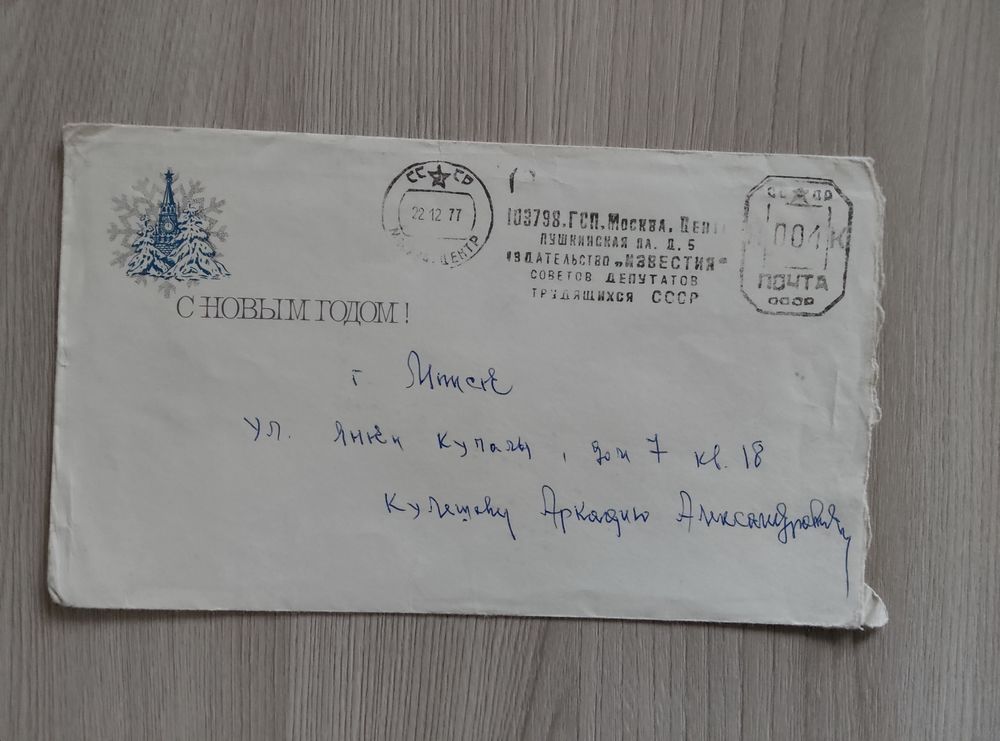 С НОВЫМ ГОДОМ!
СС СР
22 12 77
ЦЕНТР
103798, ГСП, МОСКВА, ЦЕНТ
ПУШКИНСКАЯ ПЛ. Д. 5
ИЗДАТЕЛЬСТВО „ИЗВЕСТИЯ"
СОВЕТОВ ДЕПУТАТОВ
ТРУДЯЩИХСЯ СССР
СС СР
004 К
ПОЧТА
СССР
г Минск
ул. Янки Купалы, дом 7 кв. 18
Кулешову Аркадию Александровичу